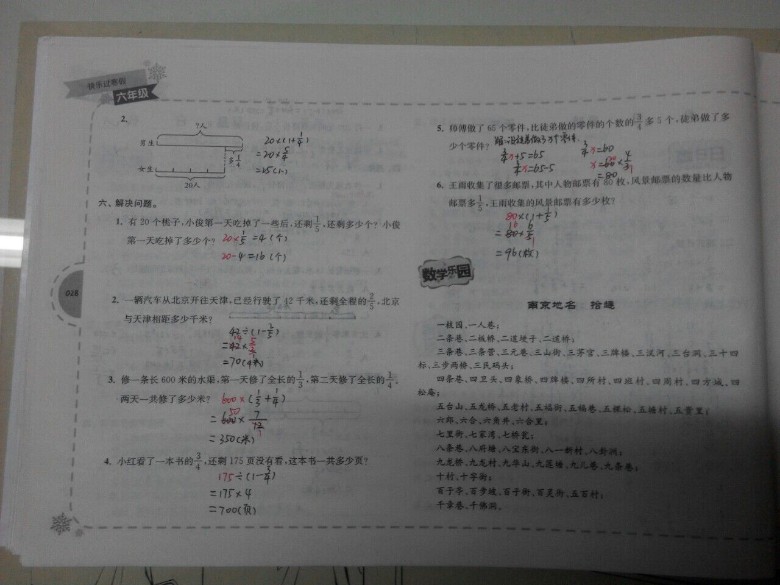 快乐过寒假
六年级
2.
?人
男生
多1/4
女生
20人
20×(1+1/4)
=20×5/4
=25(人)
六、解决问题。
1. 有20个桃子,小俊第一天吃掉了一些后,还剩1/5,还剩多少个?小俊
第一天吃掉了多少个?
20×1/5=4(个)
20-4=16(个)
028
2. 一辆汽车从北京开往天津,已经行驶了42千米,还剩全程的2/5,北京
与天津相距多少千米?
42÷(1-2/5)
=42×5/3
=70(千米)
3. 修一条长600米的水渠,第一天修了全长的1/3,第二天修了全长的1/4,
两天一共修了多少米?
600×(1/3+1/4)
=600×7/12
=350(米)
4. 小红看了一本书的3/4,还剩175页没有看,这本书一共多少页?
175÷(1-3/4)
=175×4
=700(页)
5. 师傅做了65个零件,比徒弟做的零件的个数的3/4多5个,徒弟做了多
少个零件?
3/4x+5=65
3/4x=65-5
3/4x=60
x=60×4/3
=80
6. 王雨收集了很多邮票,其中人物邮票有80枚,风景邮票的数量比人物
邮票多1/5,王雨收集的风景邮票有多少枚?
80×(1+1/5)
=80×6/5
=96(枚)
数学乐园
南京地名 拾遗
一枝园、一人巷;
二条巷、二板桥、二道埂子、二道桥;
三条巷、三条营、三元巷、三山街、三茅宫、三牌楼、三汊河、三台洞、三十四
标、三步两桥、三民码头;
四条巷、四卫头、四象桥、四牌楼、四所村、四班村、四周村、四方城、四
松庵;
五台山、五龙桥、五老村、五福街、五福巷、五棵松、五塘村、五贵里;
六郎、六合、六角井、六合里;
七里街、七家湾、七桥瓮;
八条巷、八府塘、八宝东街、八一新村、八卦洲;
九龙桥、九龙村、九华山、九莲塘、九儿巷、九条巷;
十村、十字街;
百子亭、百步坡、百子街、百灵街、五百村;
千章巷、千佛洞。